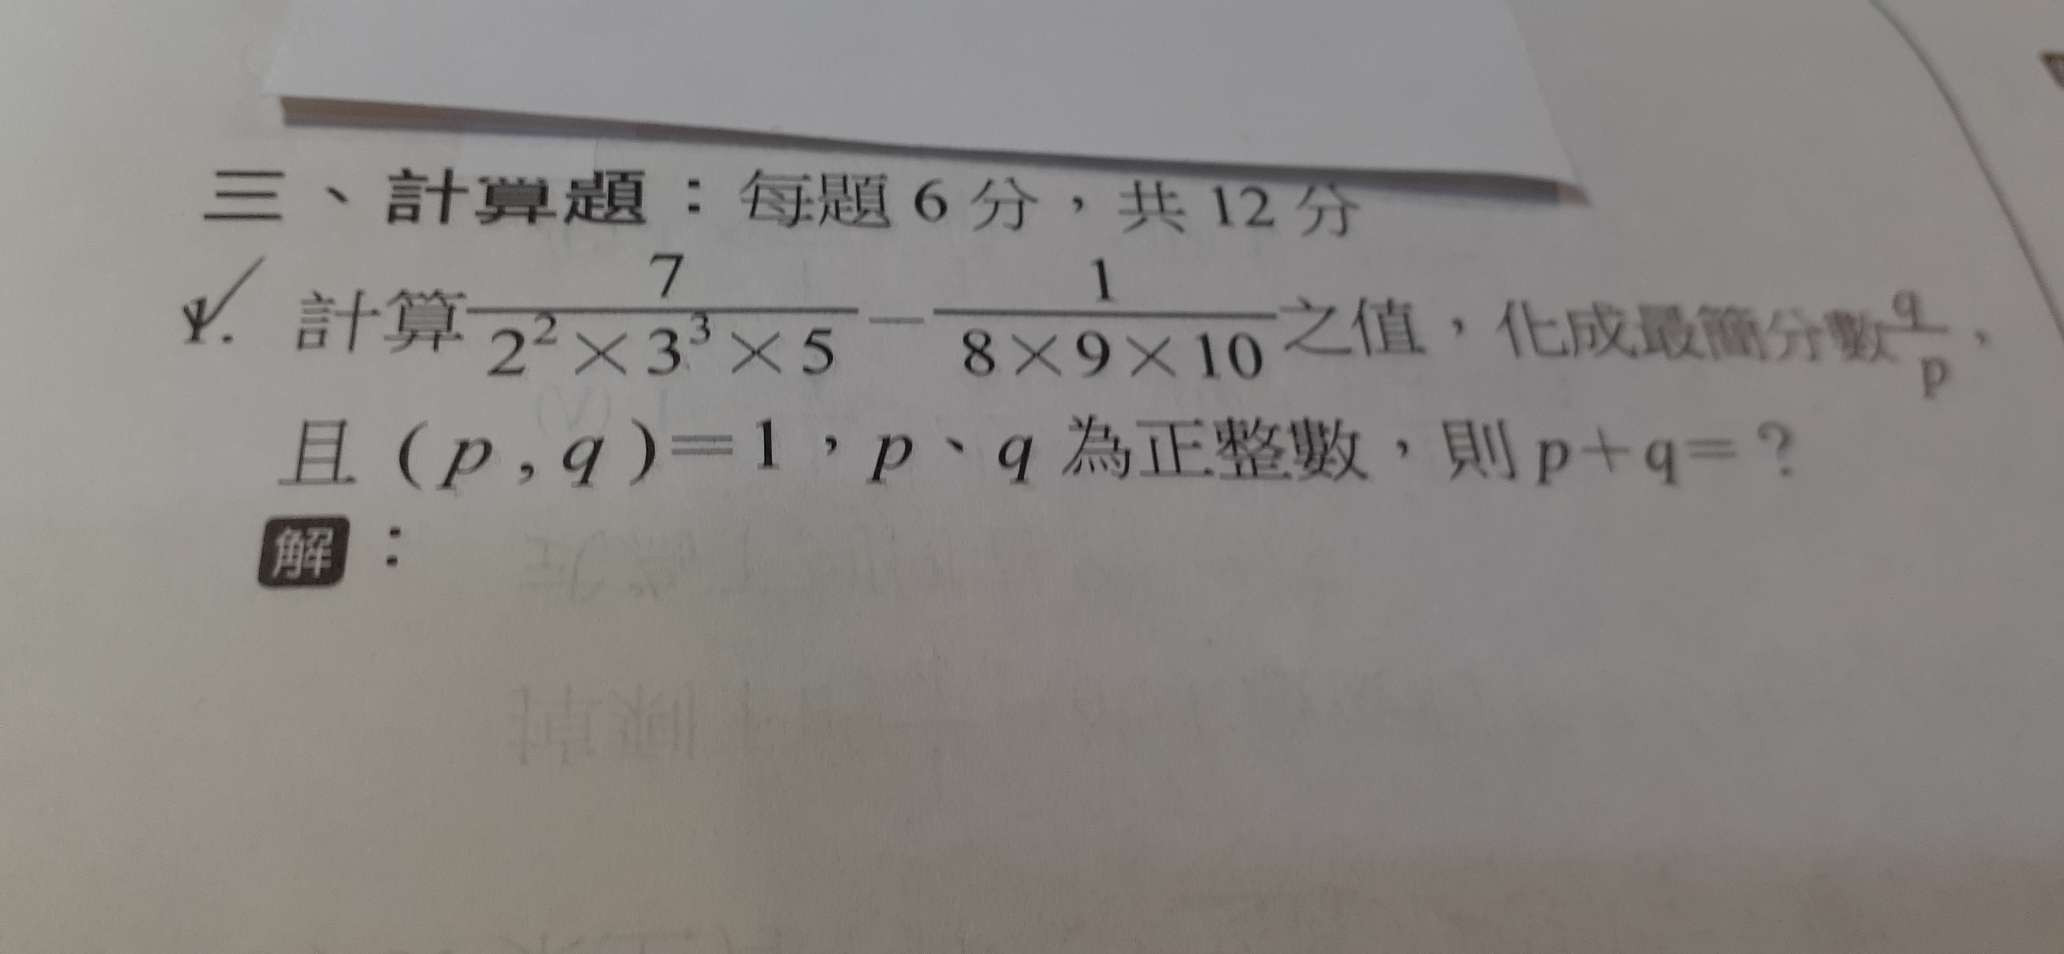 三、計算題：每題 6 分，共 12 分
1. 計算 7/(2²×3³×5) − 1/(8×9×10) 之值，化成最簡分數 q/p，
且 (p, q)＝1，p、q 為正整數，則 p＋q＝？
解：